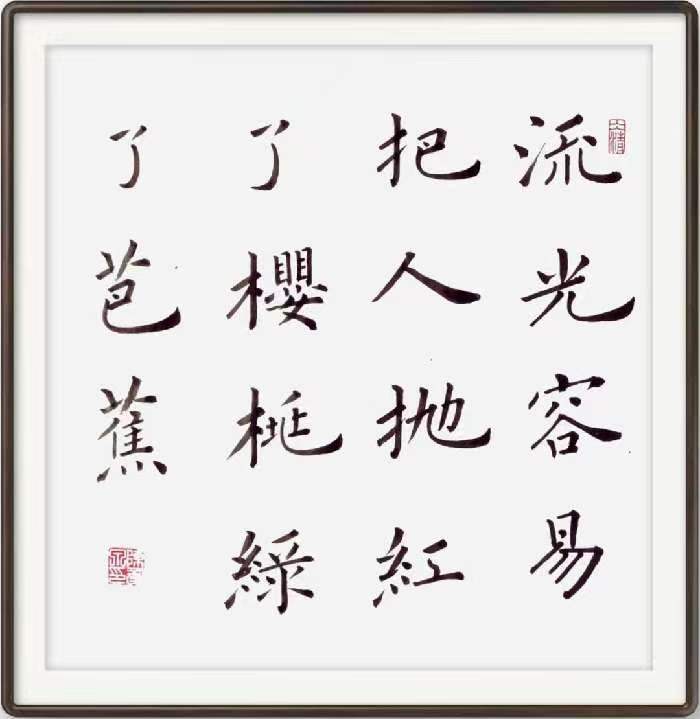 流光容易
把人抛紅
了櫻桃綠
了芭蕉